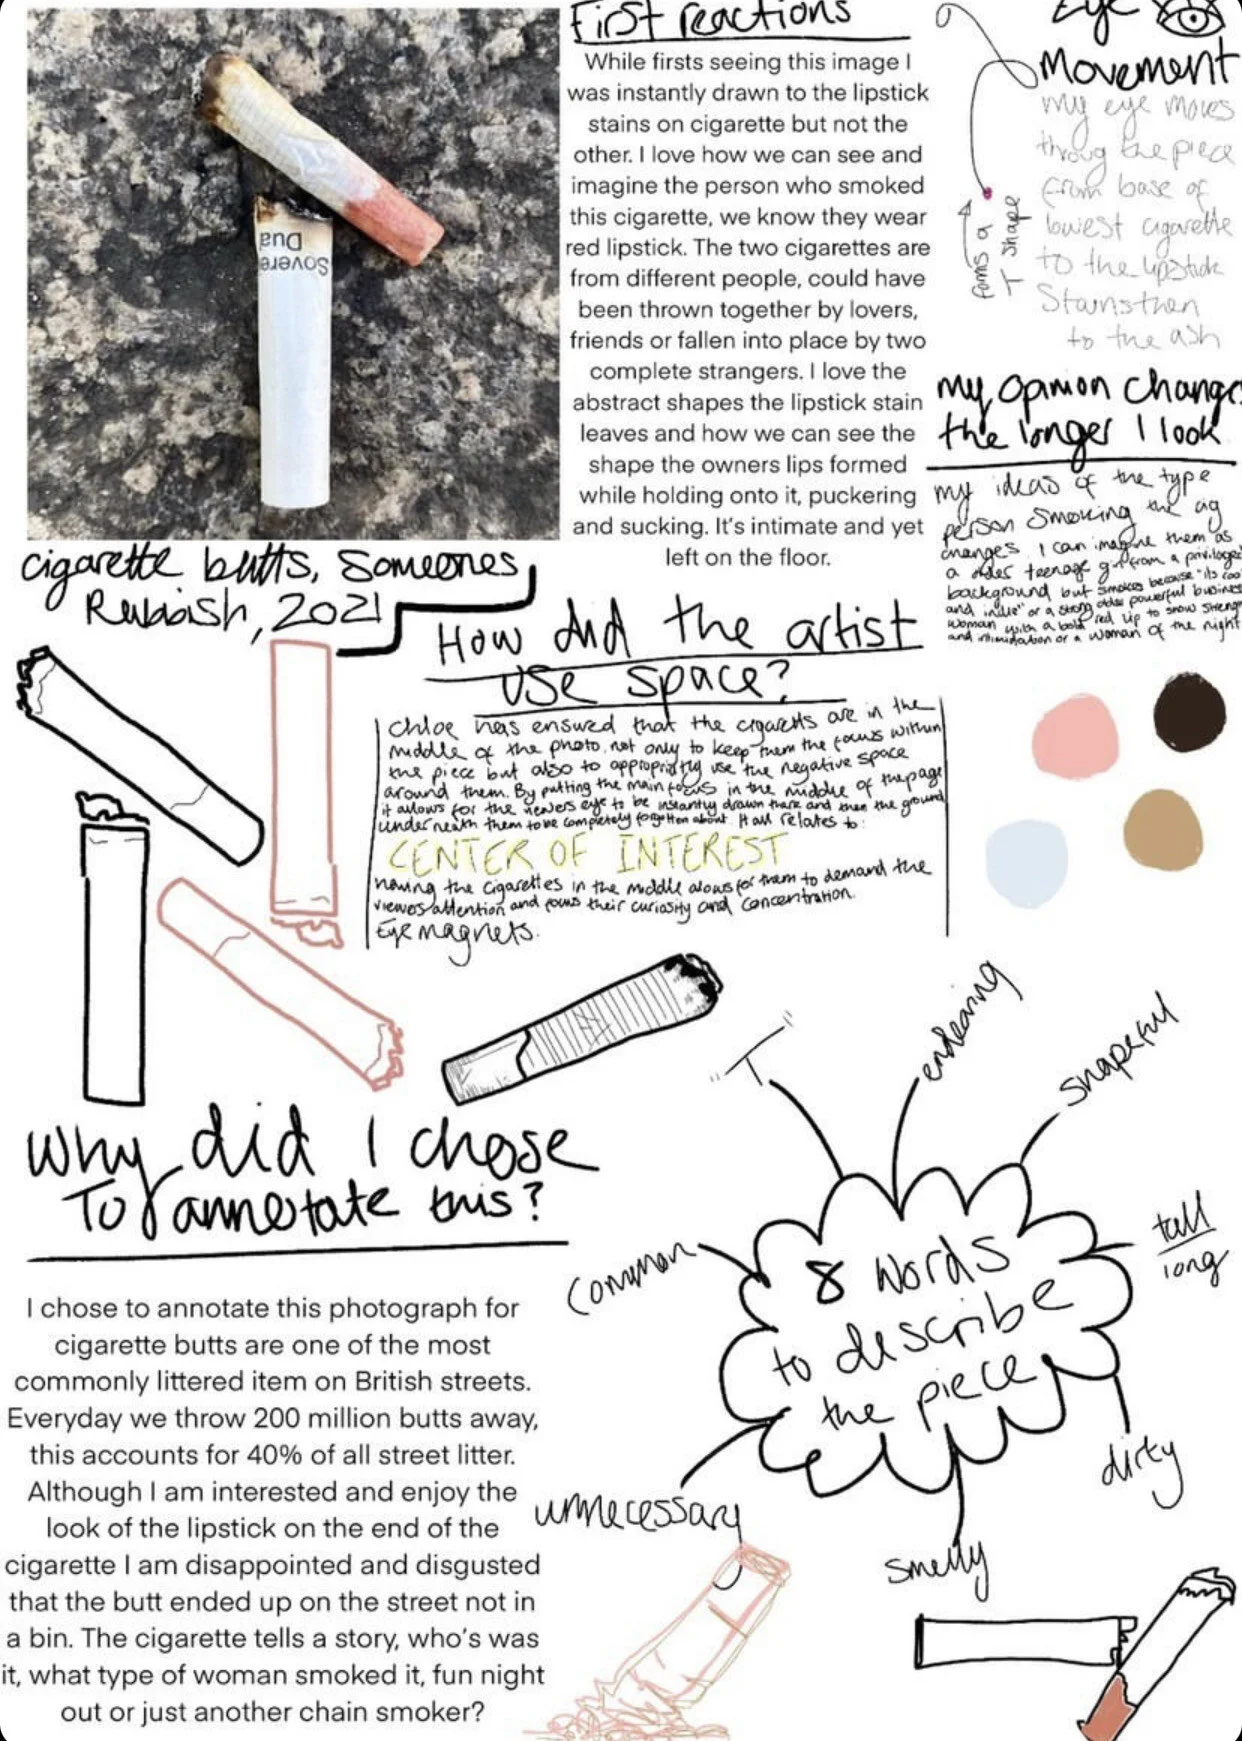 First reactions
While firsts seeing this image I
was instantly drawn to the lipstick
stains on cigarette but not the
other. I love how we can see and
imagine the person who smoked
this cigarette, we know they wear
red lipstick. The two cigarettes are
from different people, could have
been thrown together by lovers,
friends or fallen into place by two
complete strangers. I love the
abstract shapes the lipstick stain
leaves and how we can see the
shape the owners lips formed
while holding onto it, puckering
and sucking. It's intimate and yet
left on the floor.
Eye
Movement
My eye moves
throug the piece
from base of
lowest cigarette
to the lipstick
Stains then
to the ash
forms a
T shape
Sovere
Dua
my opinion change
the longer I look
my ideas of the type
person smoking the cig
changes. I can imagine them as
a older teenage girl from a privileged
background but smokes because "its cool
and indie" or a strong older powerful busines
woman with a bold red lip to show streng
and intimidation or a woman of the night
cigarette butts, Someones
Rubbish, 2021
How did the artist
use space?
Chloe has ensured that the cigaretts are in the
middle of the photo, not only to keep them the focus within
the piece but also to appropriatly use the negative space
around them. By putting the main focus in the middle of the page
it allows for the viewers eye to be instantly drawn there and then the ground
underneath them to be completely forgotten about. It all relates to:
CENTER OF INTEREST
having the cigarettes in the middle alows for them to demand the
viewers attention and focus their curiosity and concentration.
Eye magnets.
Why did I chose
To annotate this?
I chose to annotate this photograph for
cigarette butts are one of the most
commonly littered item on British streets.
Everyday we throw 200 million butts away,
this accounts for 40% of all street litter.
Although I am interested and enjoy the
look of the lipstick on the end of the
cigarette I am disappointed and disgusted
that the butt ended up on the street not in
a bin. The cigarette tells a story, who's was
it, what type of woman smoked it, fun night
out or just another chain smoker?
8 words
to describe
the piece
"T"
endearing
shapeful
tall
long
dirty
smelly
unnecessary
common